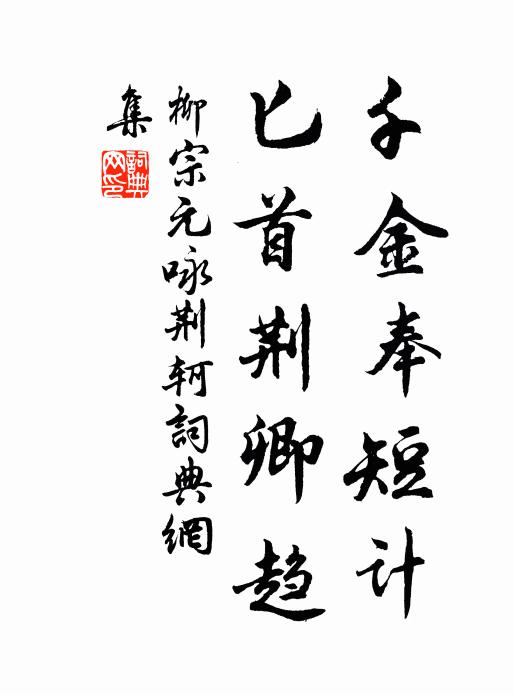 千金奉短计
匕首荆卿趋
柳宗元咏荆轲詞典網
集
詞典網印